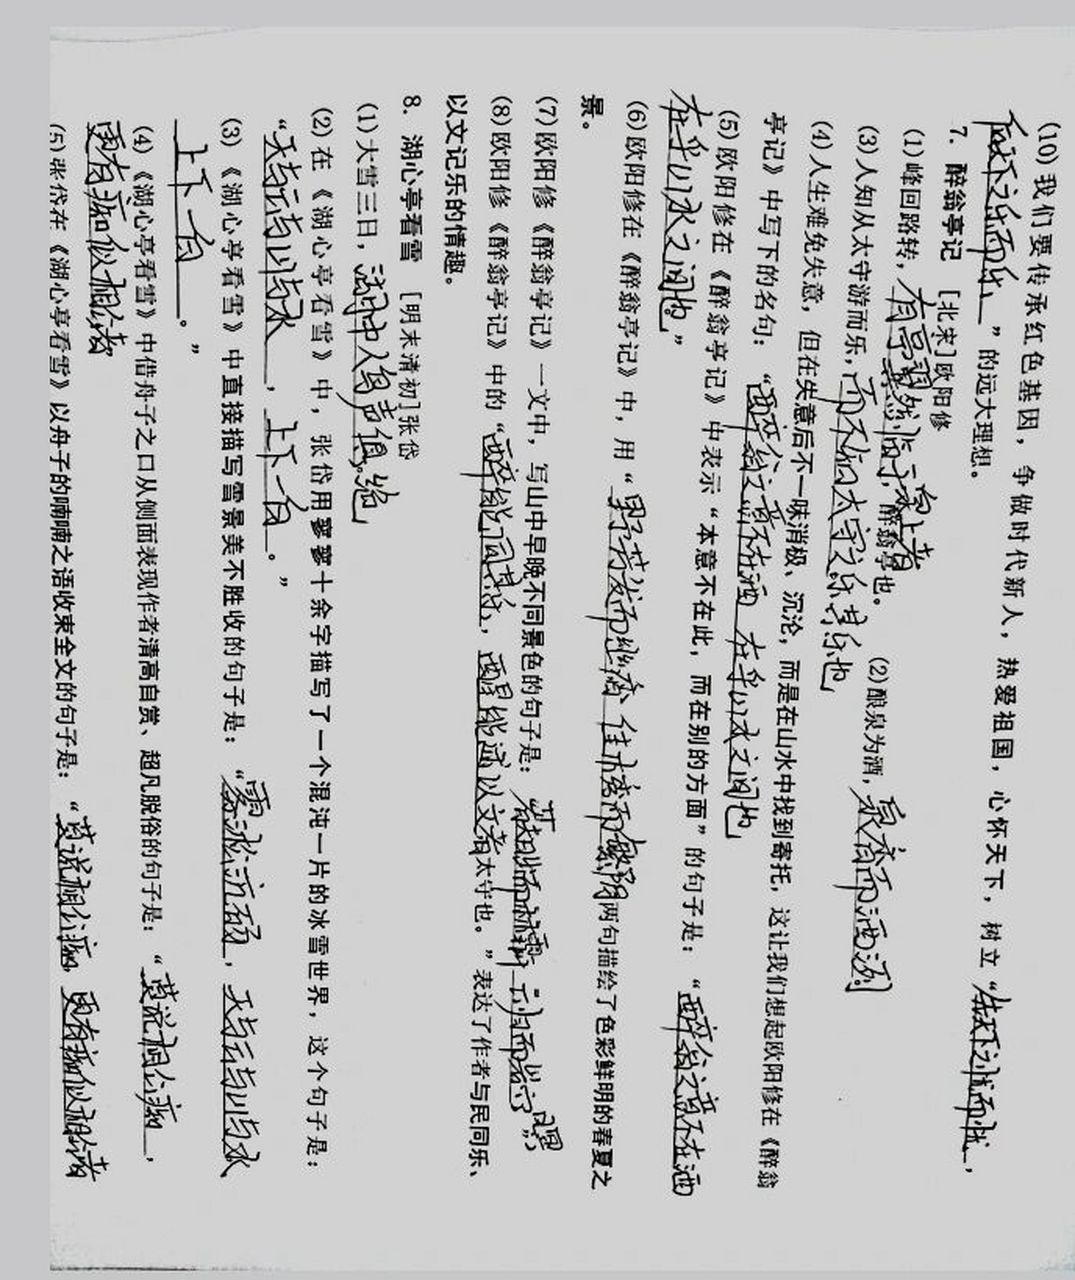 (10)我们要传承红色基因，争做时代新人，热爱祖国，心怀天下，树立“先天下之忧而忧，
后天下之乐而乐”的远大理想。
7. 醉翁亭记 [北宋]欧阳修
(1)峰回路转，有亭翼然临于泉上者，醉翁亭也。 (2)酿泉为酒，泉香而酒洌
(3)人知从太守游而乐，而不知太守之乐其乐也
(4)人生难免失意，但在失意后不一味消极、沉沦，而是在山水中找到寄托，这让我们想起欧阳修在《醉翁
亭记》中写下的名句：“醉翁之意不在酒 在乎山水之间也
(5)欧阳修在《醉翁亭记》中表示“本意不在此，而在别的方面”的句子是：“醉翁之意不在酒
在乎山水之间也”
(6)欧阳修在《醉翁亭记》中，用“野芳发而幽香 佳木秀而繁阴两句描绘了色彩鲜明的春夏之
景。
(7)欧阳修《醉翁亭记》一文中，写山中早晚不同景色的句子是：若日出而林霏开 云归而岩穴暝”
(8)欧阳修《醉翁亭记》中的“醉能同其乐，醒能述以文者太守也。”表达了作者与民同乐、
以文记乐的情趣。
8. 湖心亭看雪 [明末清初]张岱
(1)大雪三日，湖中人鸟声俱绝
(2)在《湖心亭看雪》中，张岱用寥寥十余字描写了一个混沌一片的冰雪世界，这个句子是：
“天与云与山与水，上下一白。”
(3)《湖心亭看雪》中直接描写雪景美不胜收的句子是：“雾凇沆砀，天与云与山与水
上下一白。”
(4)《湖心亭看雪》中借舟子之口从侧面表现作者清高自赏、超凡脱俗的句子是：“莫说相公痴，
更有痴似相公者
(5)张岱在《湖心亭看雪》以舟子的喃喃之语收束全文的句子是：“莫说相公痴，更有痴似相公者